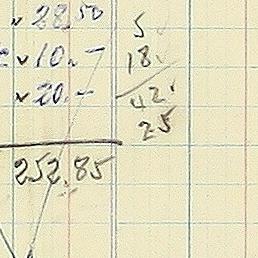 " 28,50
v 10.-
v 20.-
252.85
5
18
42
25